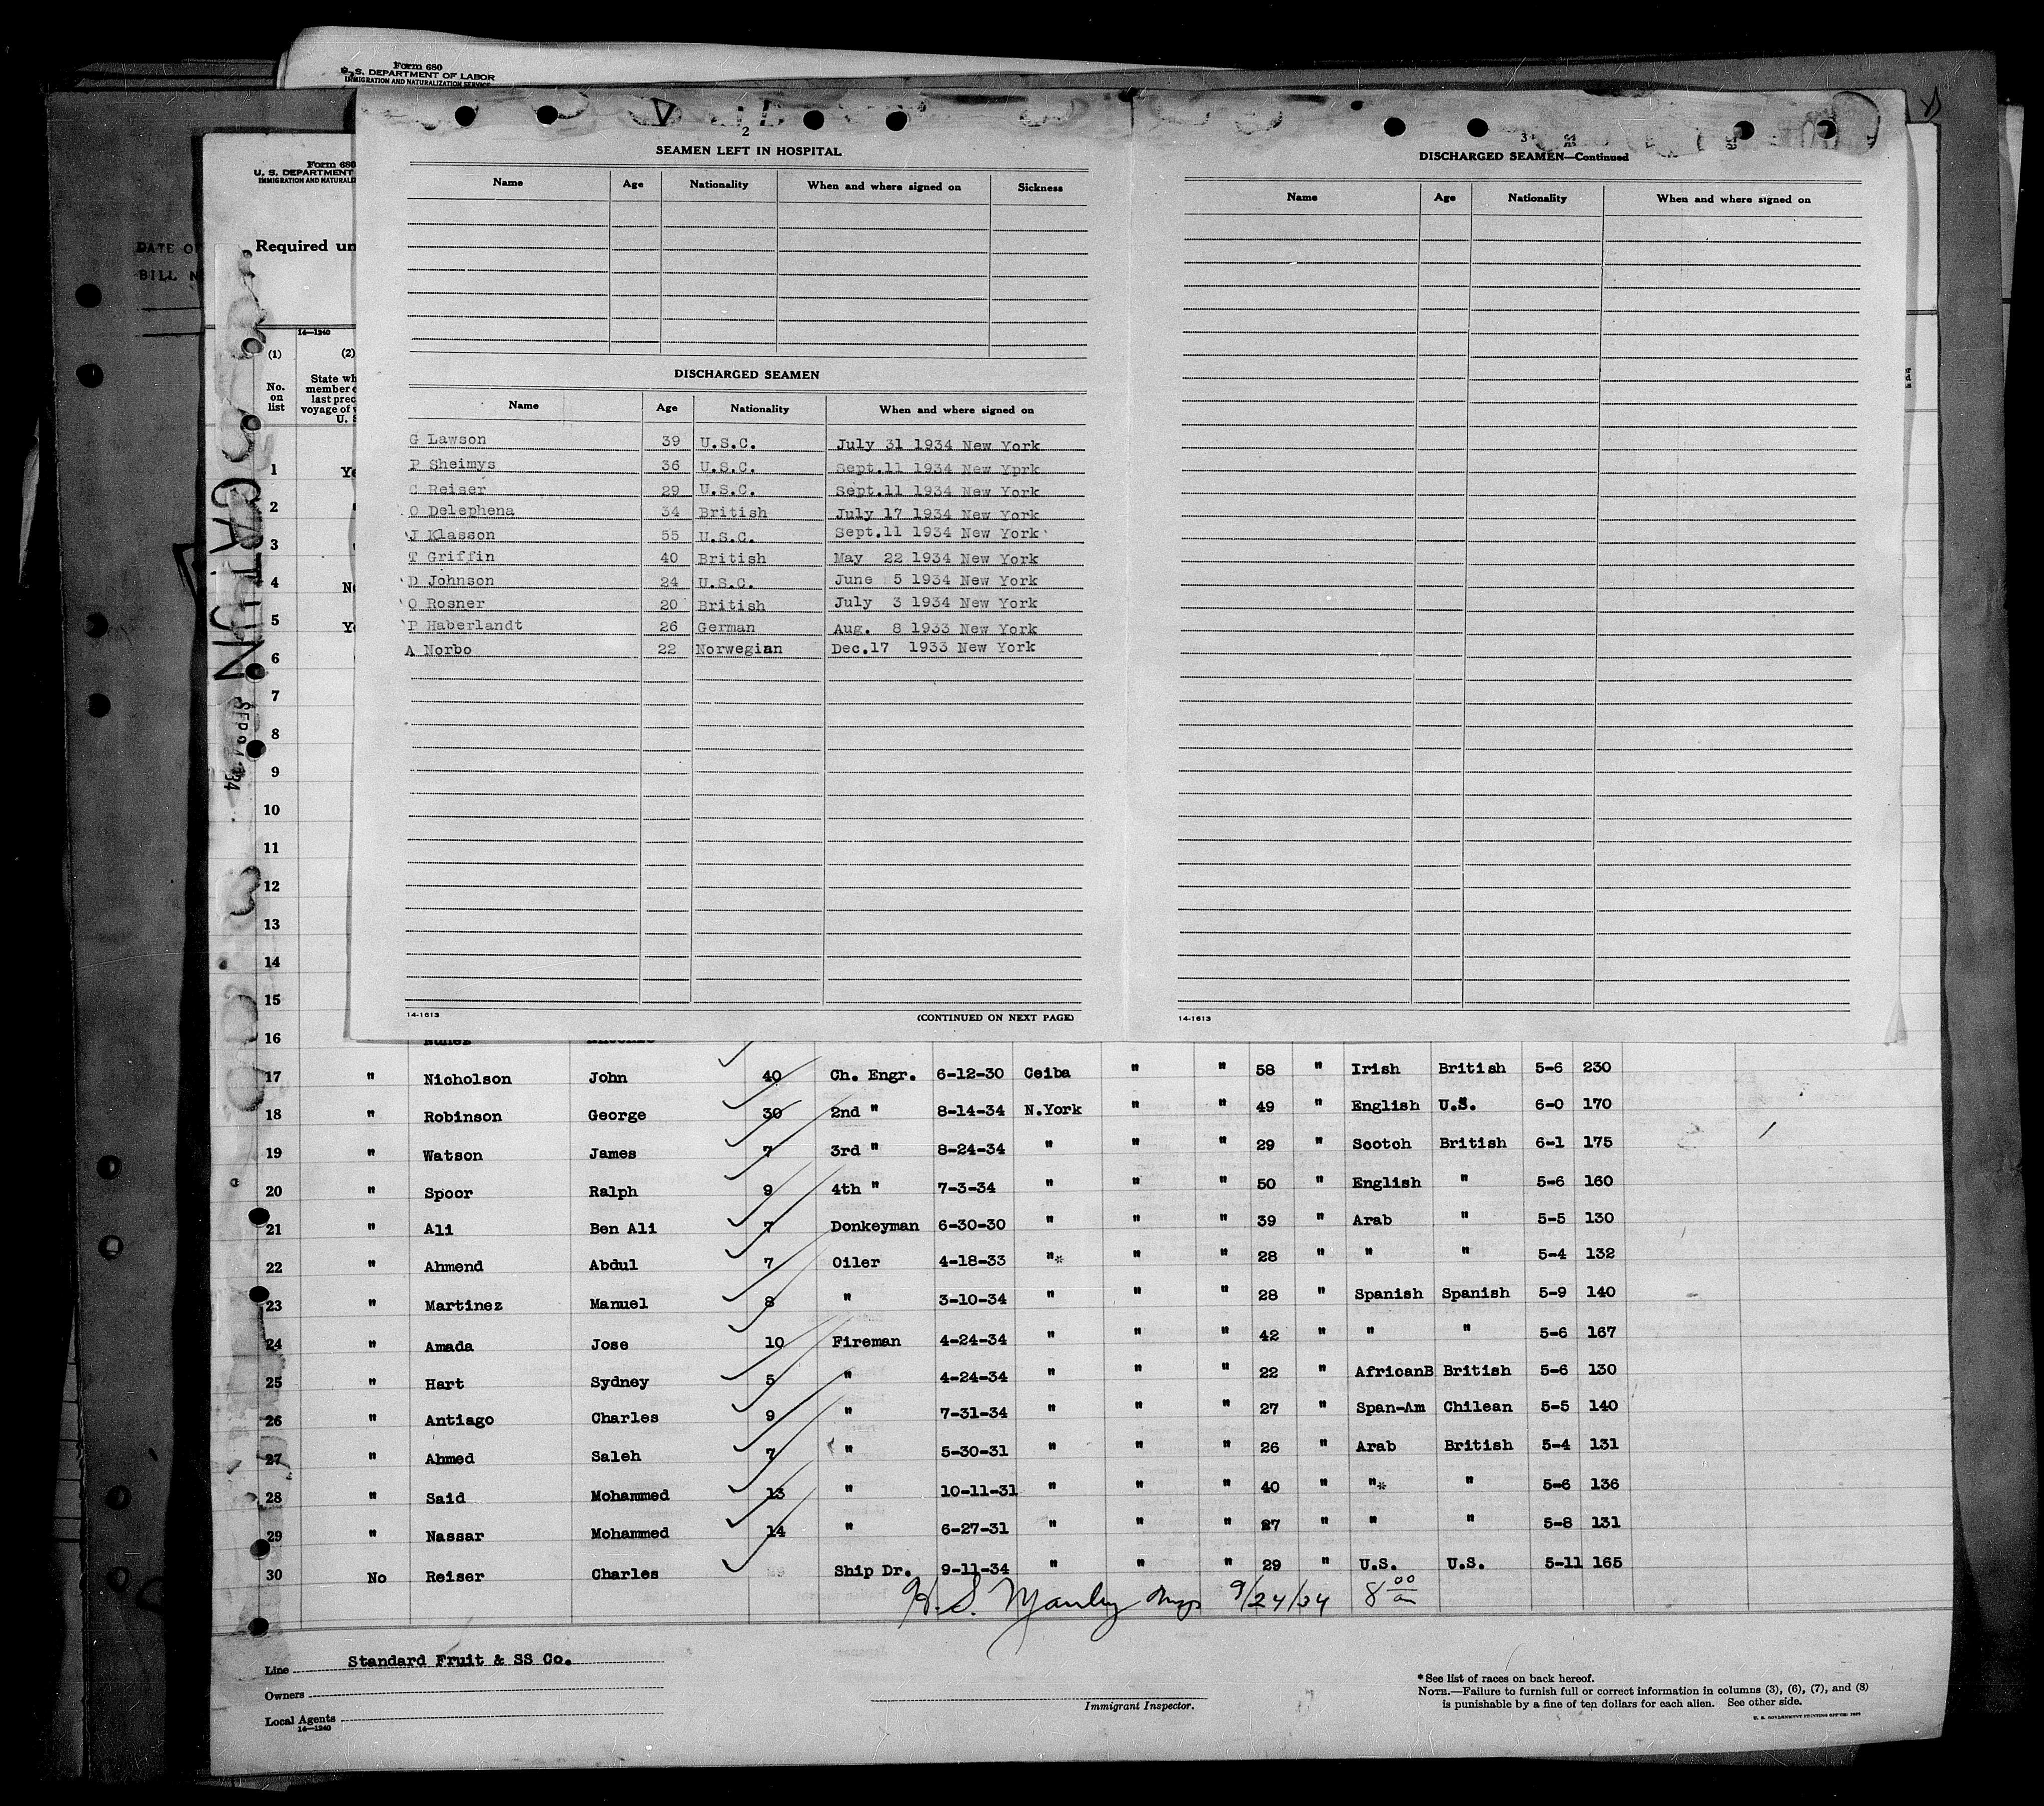 Form 680
U. S. DEPARTMENT OF LABOR
IMMIGRATION AND NATURALIZATION SERVICE
Form 680
U. S. DEPARTMENT
IMMIGRATION AND NATURALI
DATE O
BILL N
Required un
14—1240
(1) (2)
No. on list
State wh
member o
last prec
voyage of v
U. S
GATUN
SEP 24 1934
2
SEAMEN LEFT IN HOSPITAL
Name Age Nationality When and where signed on Sickness
DISCHARGED SEAMEN
Name Age Nationality When and where signed on
G Lawson 39 U.S.C. July 31 1934 New York
P Sheimys 36 U.S.C. Sept.11 1934 New Yprk
C Reiser 29 U.S.C. Sept.11 1934 New York
O Delephena 34 British July 17 1934 New York
J Klasson 55 U.S.C. Sept.11 1934 New York
T Griffin 40 British May 22 1934 New York
D Johnson 24 U.S.C. June 5 1934 New York
O Rosner 20 British July 3 1934 New York
P Haberlandt 26 German Aug. 8 1933 New York
A Norbo 22 Norwegian Dec.17 1933 New York
14-1613
(CONTINUED ON NEXT PAGE)
3
DISCHARGED SEAMEN—Continued
Name Age Nationality When and where signed on
14-1613
1 Ye
2
3
4 No
5 Ye
6
7
8
9
10
11
12
13
14
15
16
17 " Nicholson John 40 Ch. Engr. 6-12-30 Ceiba " " 58 " Irish British 5-6 230
18 " Robinson George 30 2nd " 8-14-34 N.York " " 49 " English U.S. 6-0 170
19 " Watson James 7 3rd " 8-24-34 " " " 29 " Scotch British 6-1 175
20 " Spoor Ralph 9 4th " 7-3-34 " " " 50 " English " 5-6 160
21 " Ali Ben Ali 7 Donkeyman 6-30-30 " " " 39 " Arab " 5-5 130
22 " Ahmend Abdul 7 Oiler 4-18-33 "* " " 28 " " " 5-4 132
23 " Martinez Manuel 8 " 3-10-34 " " " 28 " Spanish Spanish 5-9 140
24 " Amada Jose 10 Fireman 4-24-34 " " " 42 " " " 5-6 167
25 " Hart Sydney 5 " 4-24-34 " " " 22 " AfricanB British 5-6 130
26 " Antiago Charles 9 " 7-31-34 " " " 27 " Span-Am Chilean 5-5 140
27 " Ahmed Saleh 7 " 5-30-31 " " " 26 " Arab British 5-4 131
28 " Said Mohammed 13 " 10-11-31 " " " 40 " "* " 5-6 136
29 " Nassar Mohammed 14 " 6-27-31 " " " 27 " " " 5-8 131
30 No Reiser Charles Ship Dr. 9-11-34 " " " 29 " U.S. U.S. 5-11 165
H. S. Manley Insp 9/24/34 8 00 am
Line Standard Fruit & SS Co.
Owners
Local Agents
14—1240
Immigrant Inspector.
*See list of races on back hereof.
NOTE.—Failure to furnish full or correct information in columns (3), (6), (7), and (8)
is punishable by a fine of ten dollars for each alien. See other side.